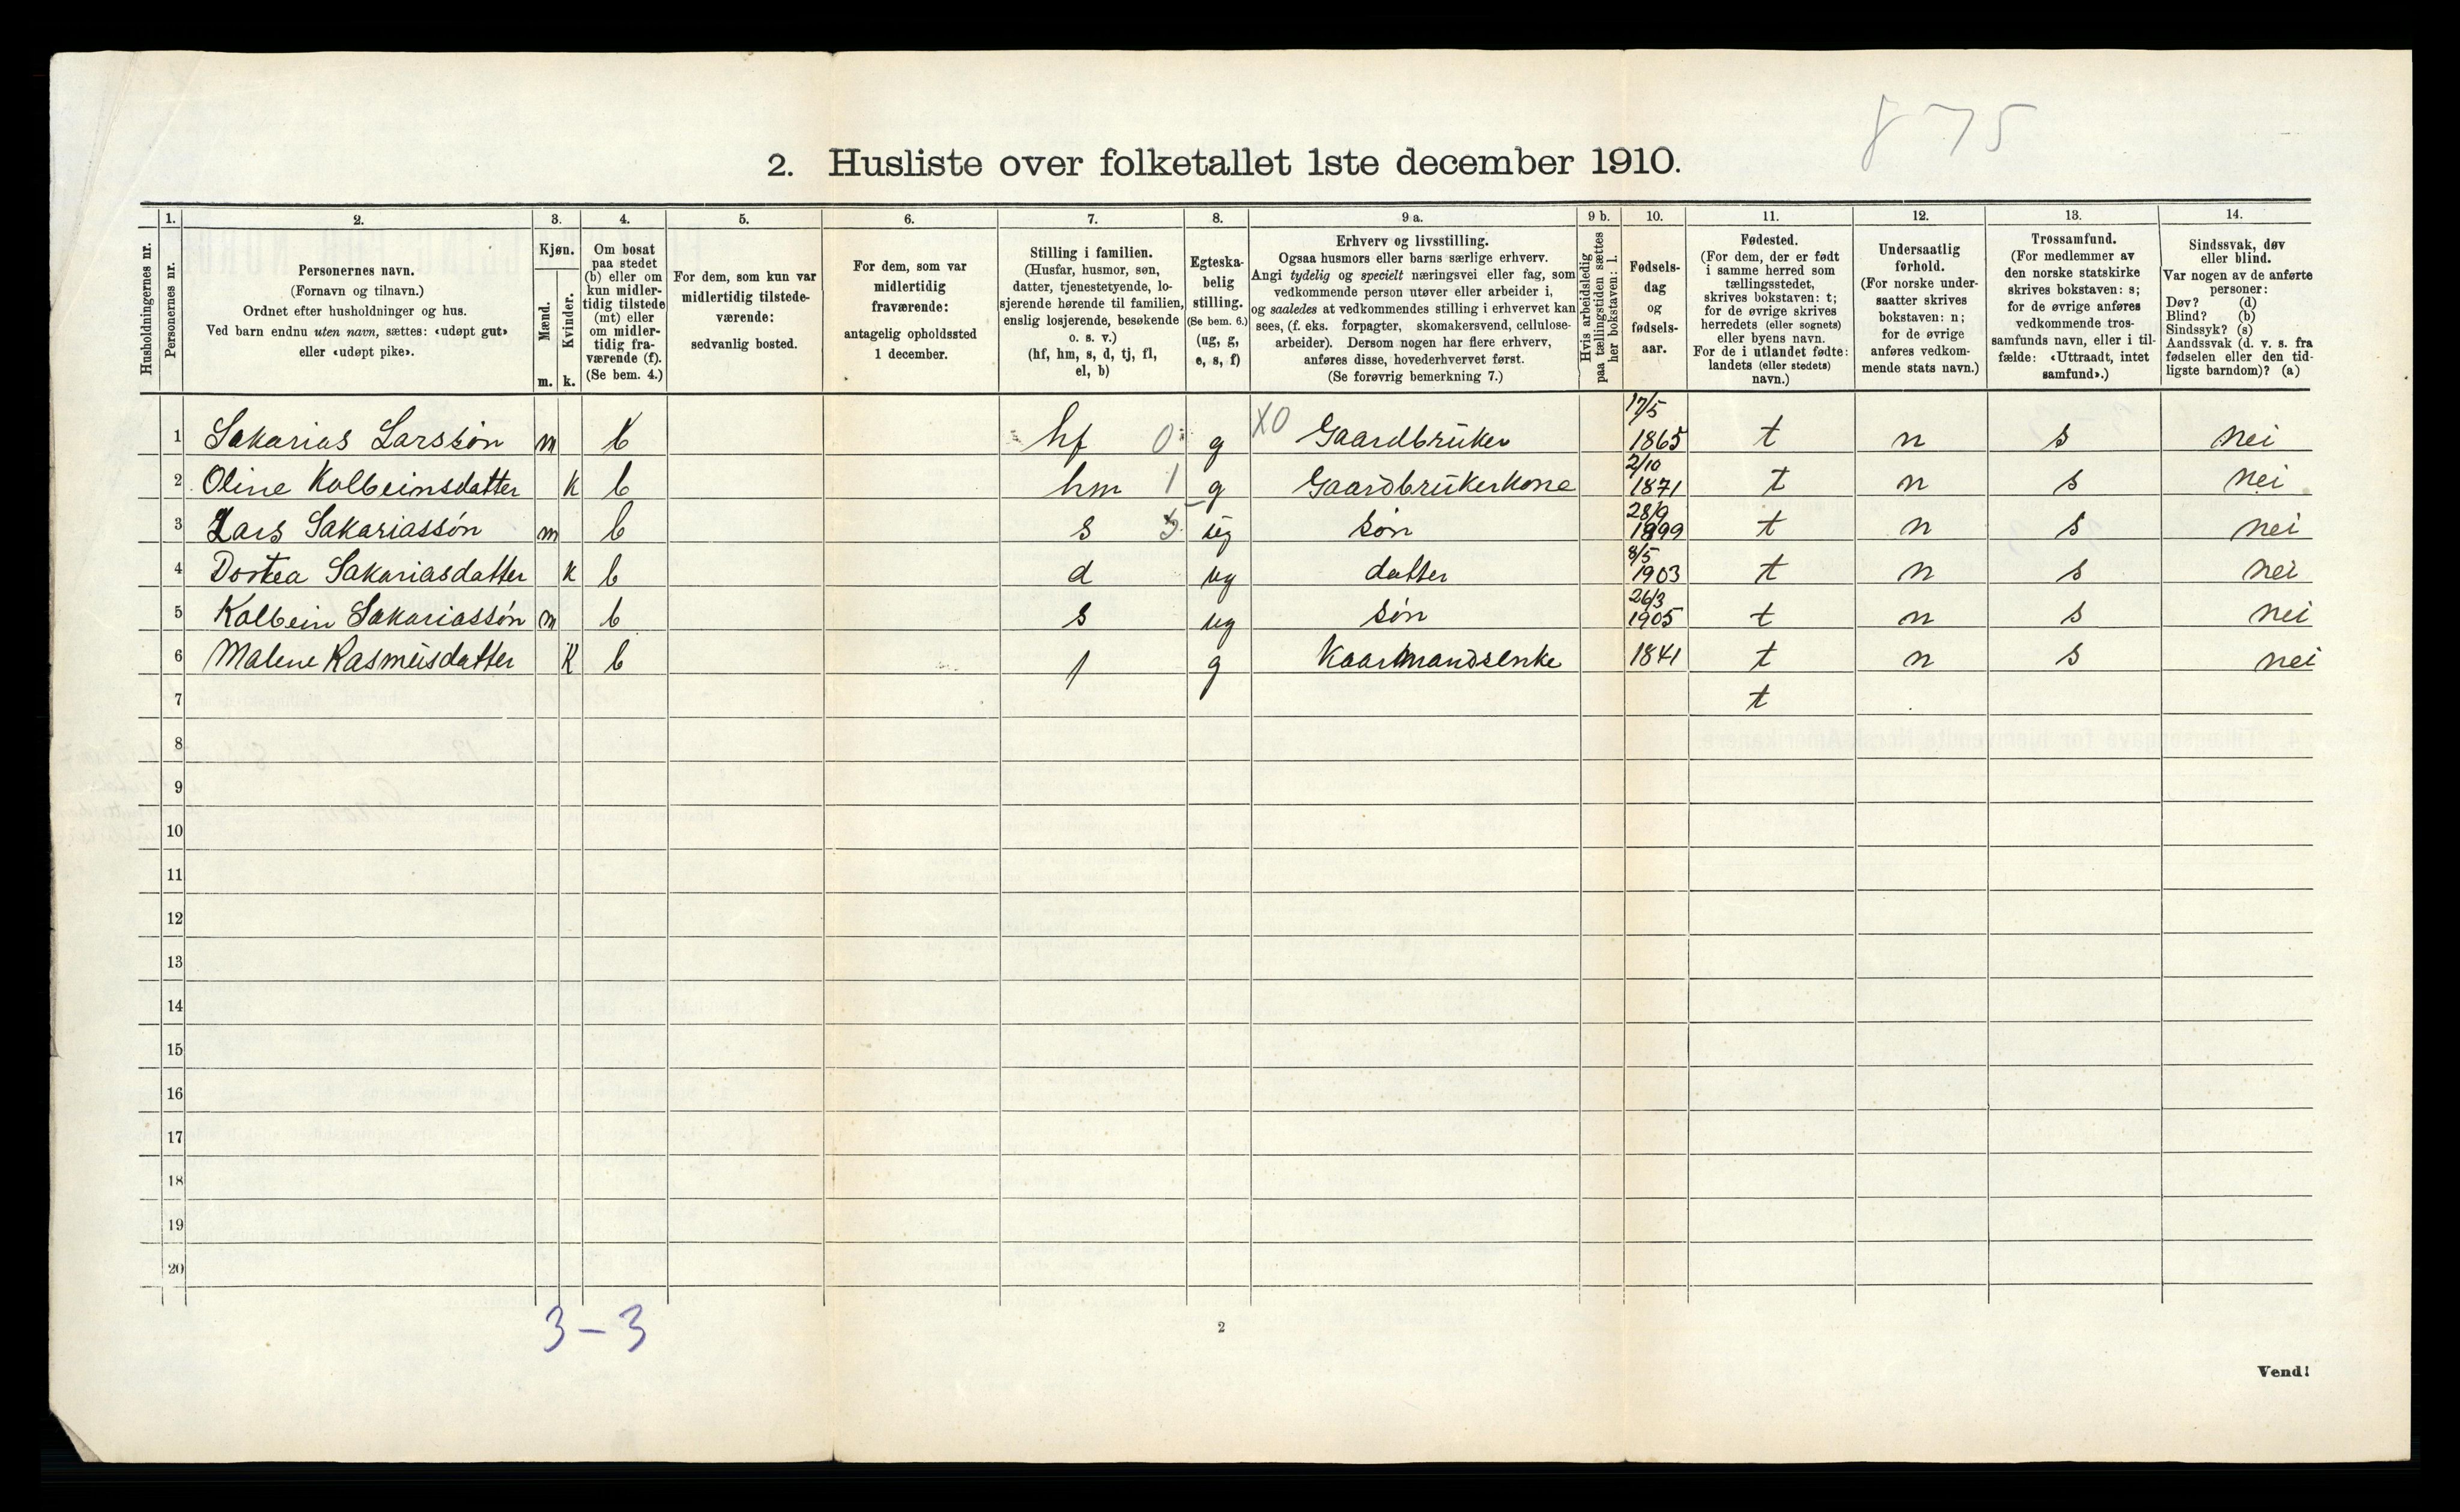 875
2. Husliste over folketallet 1ste december 1910.
Husholdningernes nr.
1. Personernes nr.
2. Personernes navn. (Fornavn og tilnavn.) Ordnet efter husholdninger og hus. Ved barn endnu uten navn, sættes: «udøpt gut» eller «udøpt pike».
3. Kjøn. Mænd. m. Kvinder. k.
4. Om bosat paa stedet (b) eller om kun midlertidig tilstede (mt) eller om midlertidig fraværende (f). (Se bem. 4.)
5. For dem, som kun var midlertidig tilstedeværende: sedvanlig bosted.
6. For dem, som var midlertidig fraværende: antagelig opholdssted 1 december.
7. Stilling i familien. (Husfar, husmor, søn, datter, tjenestetyende, losjerende hørende til familien, enslig losjerende, besøkende o. s. v.) (hf, hm, s, d, tj, fl, el, b)
8. Egteskabelig stilling. (Se bem. 6.) (ug, g, e, s, f)
9 a. Erhverv og livsstilling. Ogsaa husmors eller barns særlige erhverv. Angi tydelig og specielt næringsvei eller fag, som vedkommende person utøver eller arbeider i, og saaledes at vedkommendes stilling i erhvervet kan sees, (f. eks. forpagter, skomakersvend, cellulosearbeider). Dersom nogen har flere erhverv, anføres disse, hovederhvervet først. (Se forøvrig bemerkning 7.)
9 b. Hvis arbeidsledig paa tællingstiden sættes her bokstaven: l.
10. Fødselsdag og fødselsaar.
11. Fødested. (For dem, der er født i samme herred som tællingsstedet, skrives bokstaven: t; for de øvrige skrives herredets (eller sognets) eller byens navn. For de i utlandet fødte: landets (eller stedets) navn.)
12. Undersaatlig forhold. (For norske undersaatter skrives bokstaven: n; for de øvrige anføres vedkommende stats navn.)
13. Trossamfund. (For medlemmer av den norske statskirke skrives bokstaven: s; for de øvrige anføres vedkommende trossamfunds navn, eller i tilfælde: «Uttraadt, intet samfund».)
14. Sindssvak, døv eller blind. Var nogen av de anførte personer: Døv? (d) Blind? (b) Sindssyk? (s) Aandssvak (d. v. s. fra fødselen eller den tidligste barndom)? (a)
1 Sakarias Larssøn m b hf 0 g X0 Gaardbruker 17/5 1865 t n s nei
2 Oline Kolbeinsdatter k b hm 1 g Gaardbrukerkone 2/10 1871 t n s nei
3 Lars Sakariassøn m b s ug søn 28/9 1899 t n s nei
4 Dortea Sakariasdatter k b d ug datter 8/5 1903 t n s nei
5 Kolbein Sakariassøn m b s ug søn 26/3 1905 t n s nei
6 Malene Rasmusdatter K b f g Kaarmandsenke 1841 t n s nei
7 t
8
9
10
11
12
13
14
15
16
17
18
19
20
3 – 3
2
Vend!